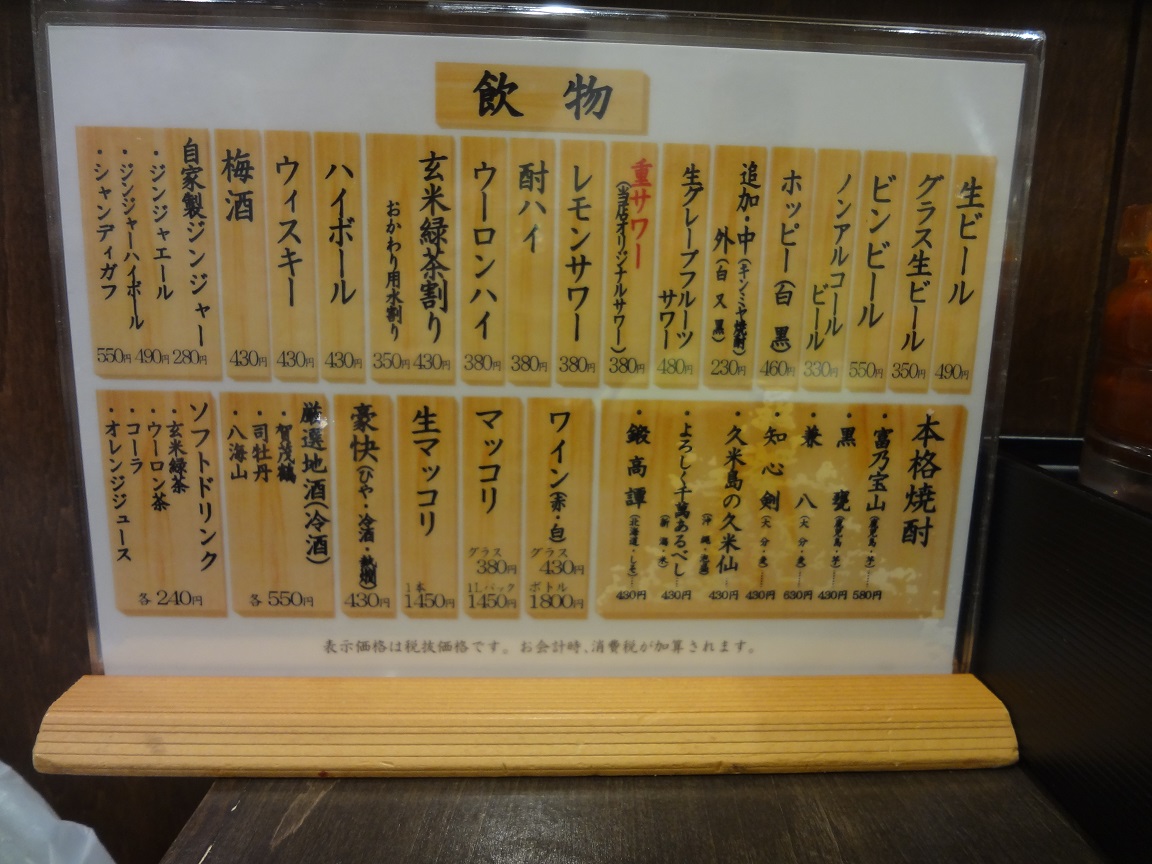 飲物
生ビール 490円
グラス生ビール 350円
ビンビール 550円
ノンアルコールビール 330円
ホッピー(白 黒) 460円
追加・中(キンミヤ焼酎)
外(白又黒) 230円
生グレープフルーツサワー 480円
重サワー
(当店オリジナルサワー) 380円
レモンサワー 380円
酎ハイ 380円
ウーロンハイ 380円
玄米緑茶割り 430円
おかわり用水割り 350円
ハイボール 430円
ウィスキー 430円
梅酒 430円
自家製ジンジャー
・ジンジャエール 280円
・ジンジャーハイボール 490円
・シャンディガフ 550円
本格焼酎
・富乃宝山(鹿児島・芋) 580円
・黒甕(鹿児島・芋) 430円
・兼八(大分・麦) 630円
・知心剣(大分・麦) 430円
・久米島の久米仙(沖縄・泡盛) 430円
・よろしく千萬あるべし(新潟・米) 430円
・鍛高譚(北海道・しそ) 430円
ワイン(赤・白)
グラス 430円
ボトル 1800円
マッコリ
グラス 380円
1Lパック 1450円
生マッコリ
1本 1450円
豪快(ひや・冷酒・熱燗) 430円
厳選地酒(冷酒)
・賀茂鶴
・司牡丹
・八海山
各 550円
ソフトドリンク
・玄米緑茶
・ウーロン茶
・コーラ
・オレンジジュース
各 240円
表示価格は税抜価格です。お会計時、消費税が加算されます。